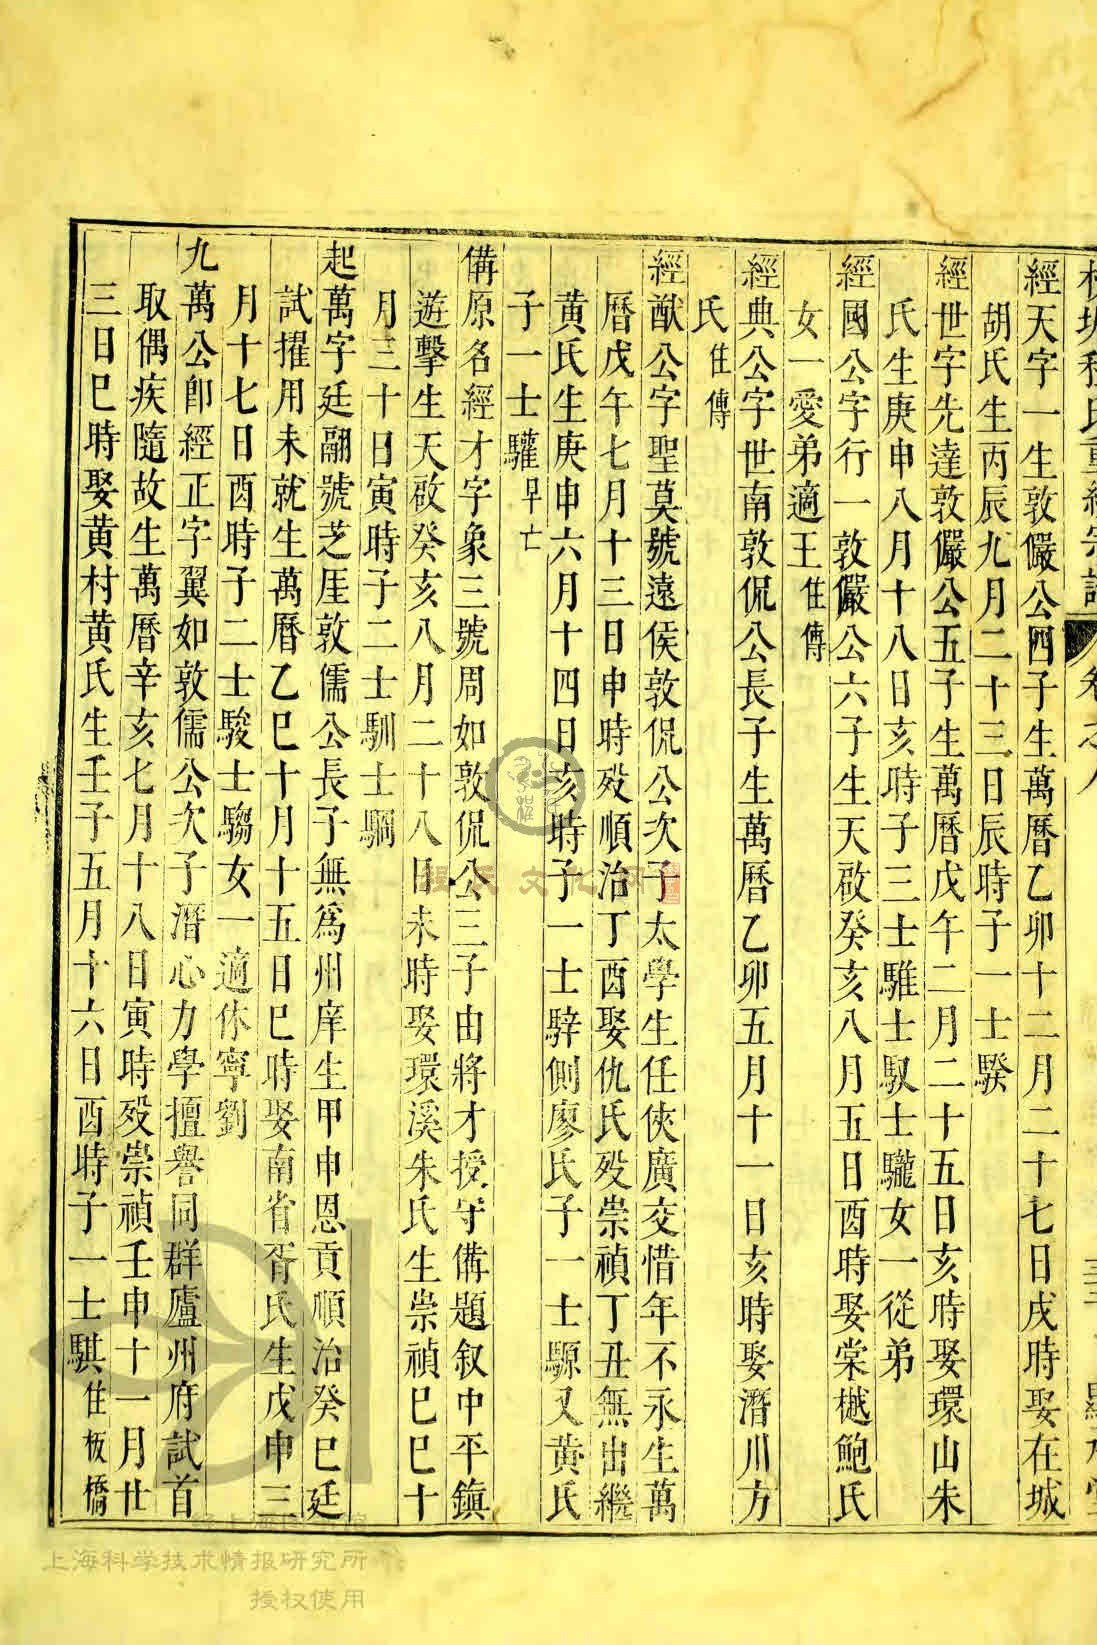 經天字一生敦儼公四子生萬曆乙卯十二月二十七日戌時娶在城
胡氏生丙辰九月二十三日辰時子一士騤
經世字先達敦儼公五子生萬曆戊午二月二十五日亥時娶環山朱
氏生庚申八月十八日亥時子三士騅士馭士驪女一從弟
經國公字行一敦儼公六子生天啟癸亥八月五日酉時娶棠樾鮑氏
女一愛弟適王住傳
經典公字世南敦侃公長子生萬曆乙卯五月十一日亥時娶潛川方
氏住傳
經猷公字聖莫號遠侯敦侃公次子太學生任俠廣交惜年不永生萬
曆戊午七月十三日申時歿順治丁酉娶仇氏歿崇禎丁丑無出繼
黃氏生庚申六月十四日亥時子一士騂側廖氏子一士騵又黃氏
子一士驩早亡
備原名經才字象三號周如敦侃公三子由將才授守備題叙中平鎮
遊擊生天啟癸亥八月二十八日未時娶環溪朱氏生崇禎巳巳十
月三十日寅時子二士馴士騆
起萬字廷翮號芝厓敦儒公長子無爲州庠生甲申恩貢順治癸巳廷
試擢用未就生萬曆乙巳十月十五日巳時娶南省胥氏生戊申三
月十七日酉時子二士駿士騶女一適休寧劉
九萬公卽經正字翼如敦儒公次子潛心力學擅譽同群廬州府試首
取偶疾隨故生萬曆辛亥七月十八日寅時歿崇禎壬申十一月廿
三日巳時娶黃村黃氏生壬子五月十六日酉時子一士騏住板橋
上海科学技术情报研究所
授权使用